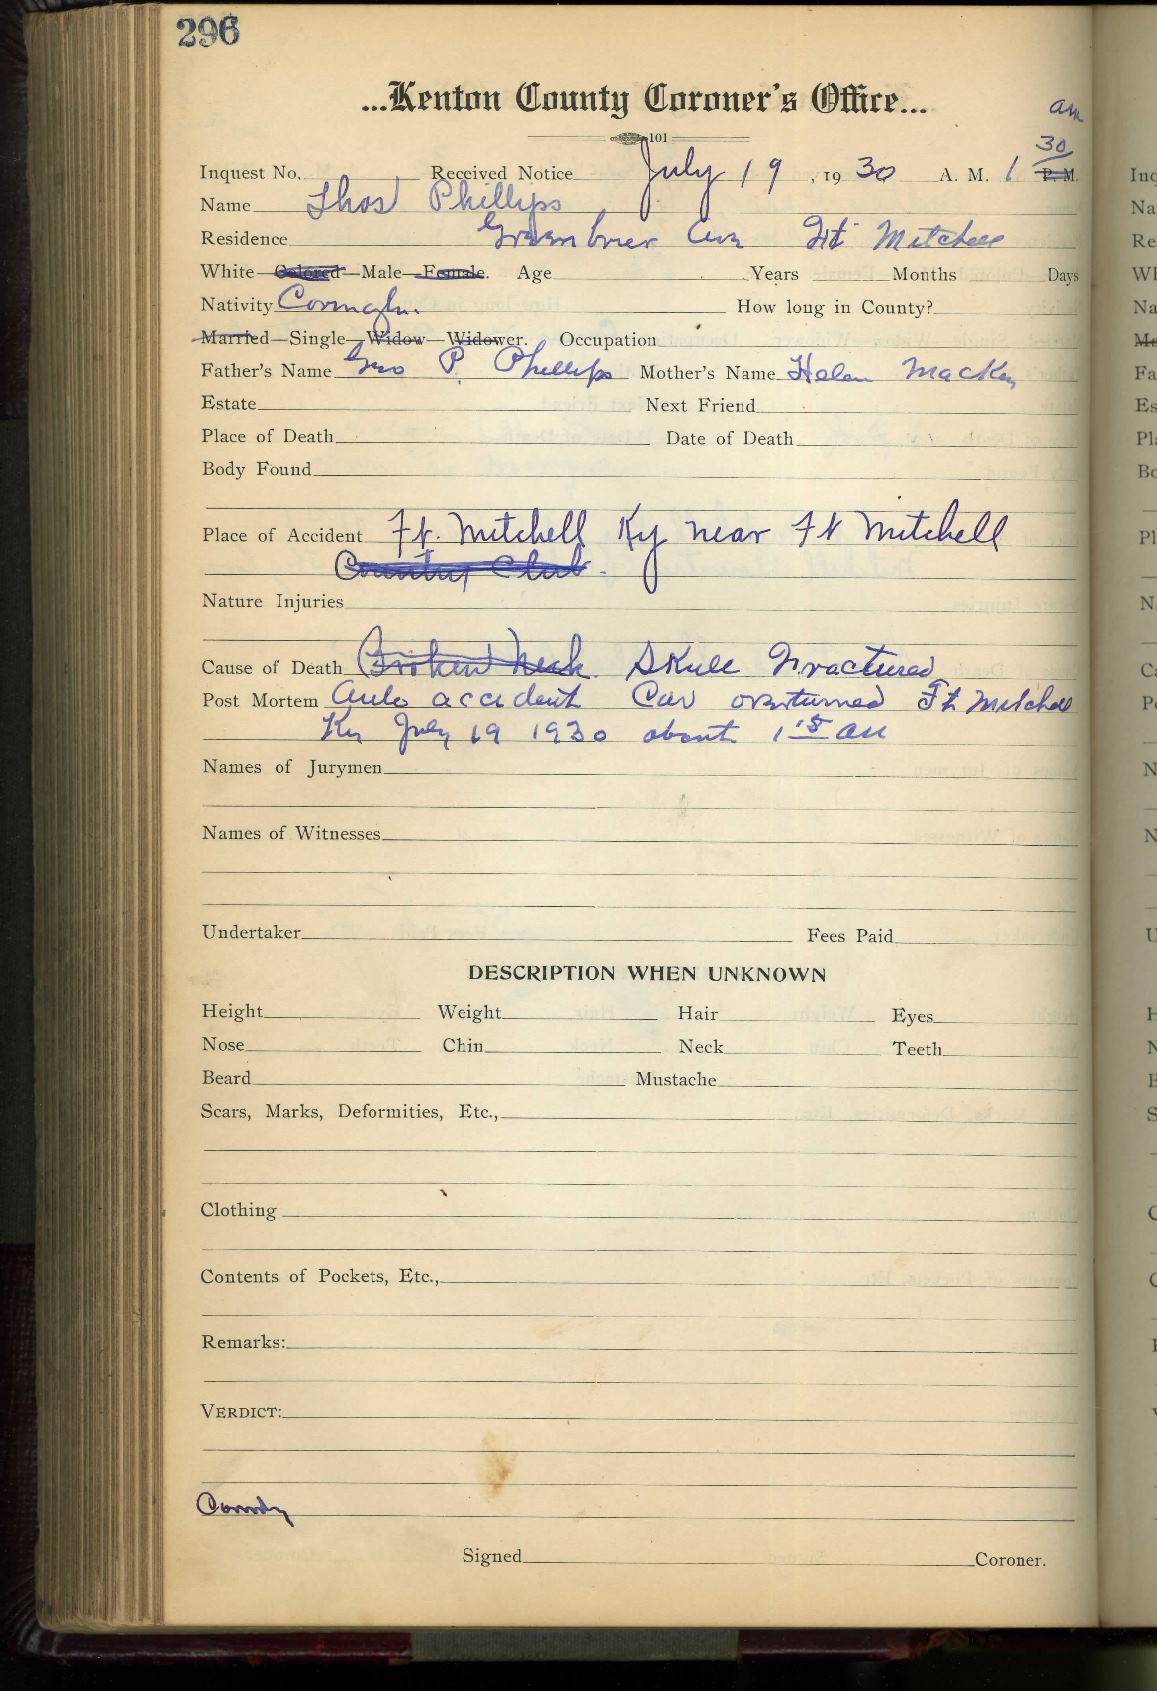 296
...Kenton County Coroner's Office...
101
am
Inquest No. Received Notice July 19, 1930 A. M. 1 30 P. M.
Name Thos Phillips
Residence Greenbrier Ave Ft Mitchell
White—Colored—Male—Female. Age Years Months Days
Nativity Covington.
How long in County?
Married—Single—Widow—Widower. Occupation
Father's Name Geo P. Phillips Mother's Name Helen Mackey
Estate Next Friend
Place of Death Date of Death
Body Found
Place of Accident Ft. Mitchell Ky near Ft Mitchell
Country Club.
Nature Injuries
Cause of Death Broken Neck. Skull Fractured
Post Mortem Auto accident Car overturned Ft Mitchell
Ky July 19 1930 about 1 am
Names of Jurymen
Names of Witnesses
Undertaker Fees Paid
DESCRIPTION WHEN UNKNOWN
Height Weight Hair Eyes
Nose Chin Neck Teeth
Beard Mustache
Scars, Marks, Deformities, Etc.,
Clothing
Contents of Pockets, Etc.,
Remarks:
VERDICT:
County
Signed Coroner.